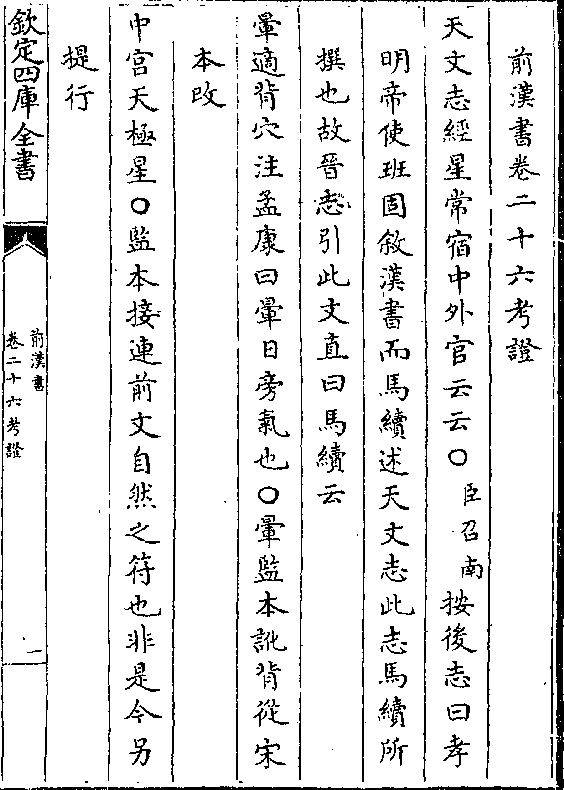 前漢書卷二十六考證
天文志經星常宿中外官云云○臣召南按後志曰孝
明帝使班固敘漢書而馬續述天文志此志馬續所
撰也故晉志引此文直曰馬續云
暈適背穴注孟康曰暈日旁氣也○暈監本訛背從宋
本改
中宮天極星○監本接連前文自然之符也非是今另
提行
欽定四庫全書
前漢書
卷二十六考證
一